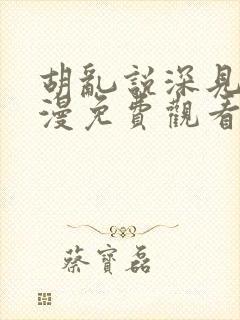 胡亂說深見
漫免費觀看
蔡寶磊